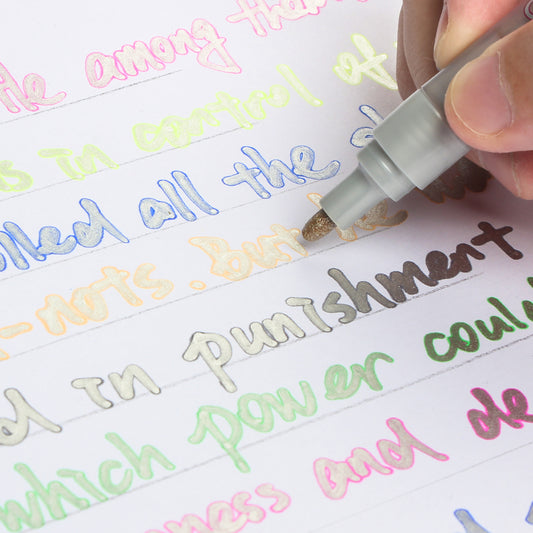 le among them
s in control of
lled all the
-nots. But he
d in punishment
which power could
ness and de